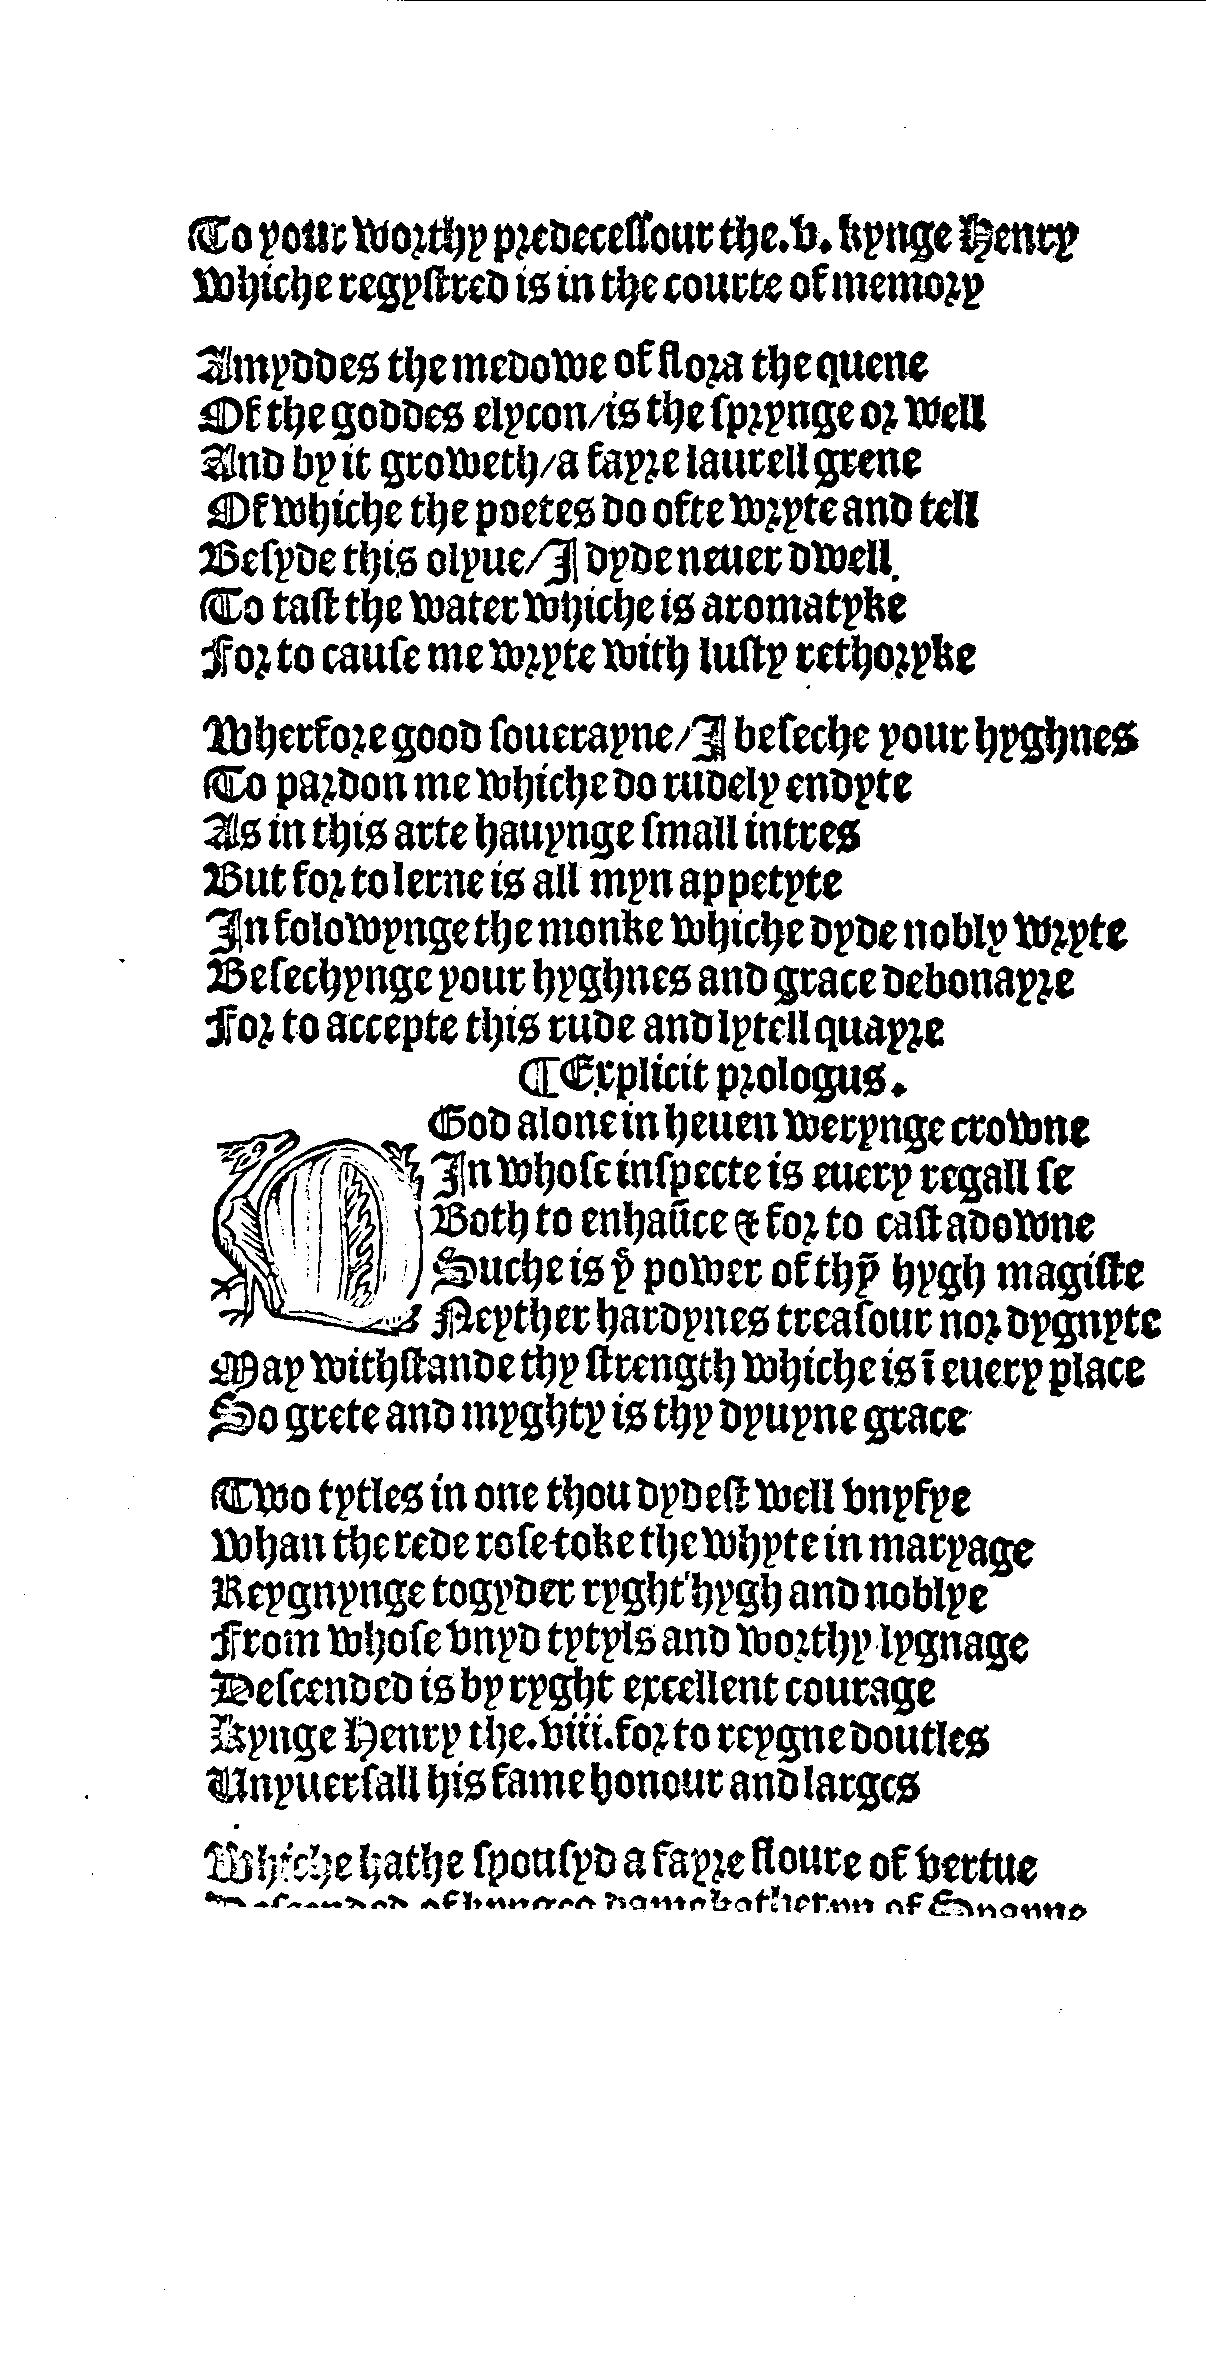 To your worthy predecessour the .v. kynge Henry
Whiche regystred is in the courte of memory
Amyddes the medowe of flora the quene
Of the goddes elycon/is the sprynge or well
And by it groweth/a fayre laurell grene
Of whiche the poetes do ofte wryte and tell
Besyde this olyue/I dyde neuer dwell.
To tast the water whiche is aromatyke
For to cause me wryte with lusty rethoryke
Wherfore good souerayne/I beseche your hyghnes
To pardon me whiche do rudely endyte
As in this arte hauynge small intres
But for to lerne is all myn appetyte
In folowynge the monke whiche dyde nobly wryte
Besechynge your hyghnes and grace debonayre
For to accepte this rude and lytell quayre
¶Explicit prologus.
O God alone in heuen werynge crowne
In whose inspecte is euery regall se
Both to enhaūce & for to cast adowne
Suche is yͤ power of thȳ hygh magiste
Neyther hardynes treasour nor dygnyte
May withstande thy strength whiche is ī euery place
So grete and myghty is thy dyuyne grace
Two tytles in one thou dydest well vnyfye
Whan the rede rose toke the whyte in maryage
Reygnynge togyder ryght hygh and noblye
From whose vnyd tytyls and worthy lygnage
Descended is by ryght excellent courage
Kynge Henry the .viii. for to reygne doutles
Unyuersall his fame honour and larges
Whiche hathe spousyd a fayre floure of vertue
Descended of kynges dame katheryn of Spayne